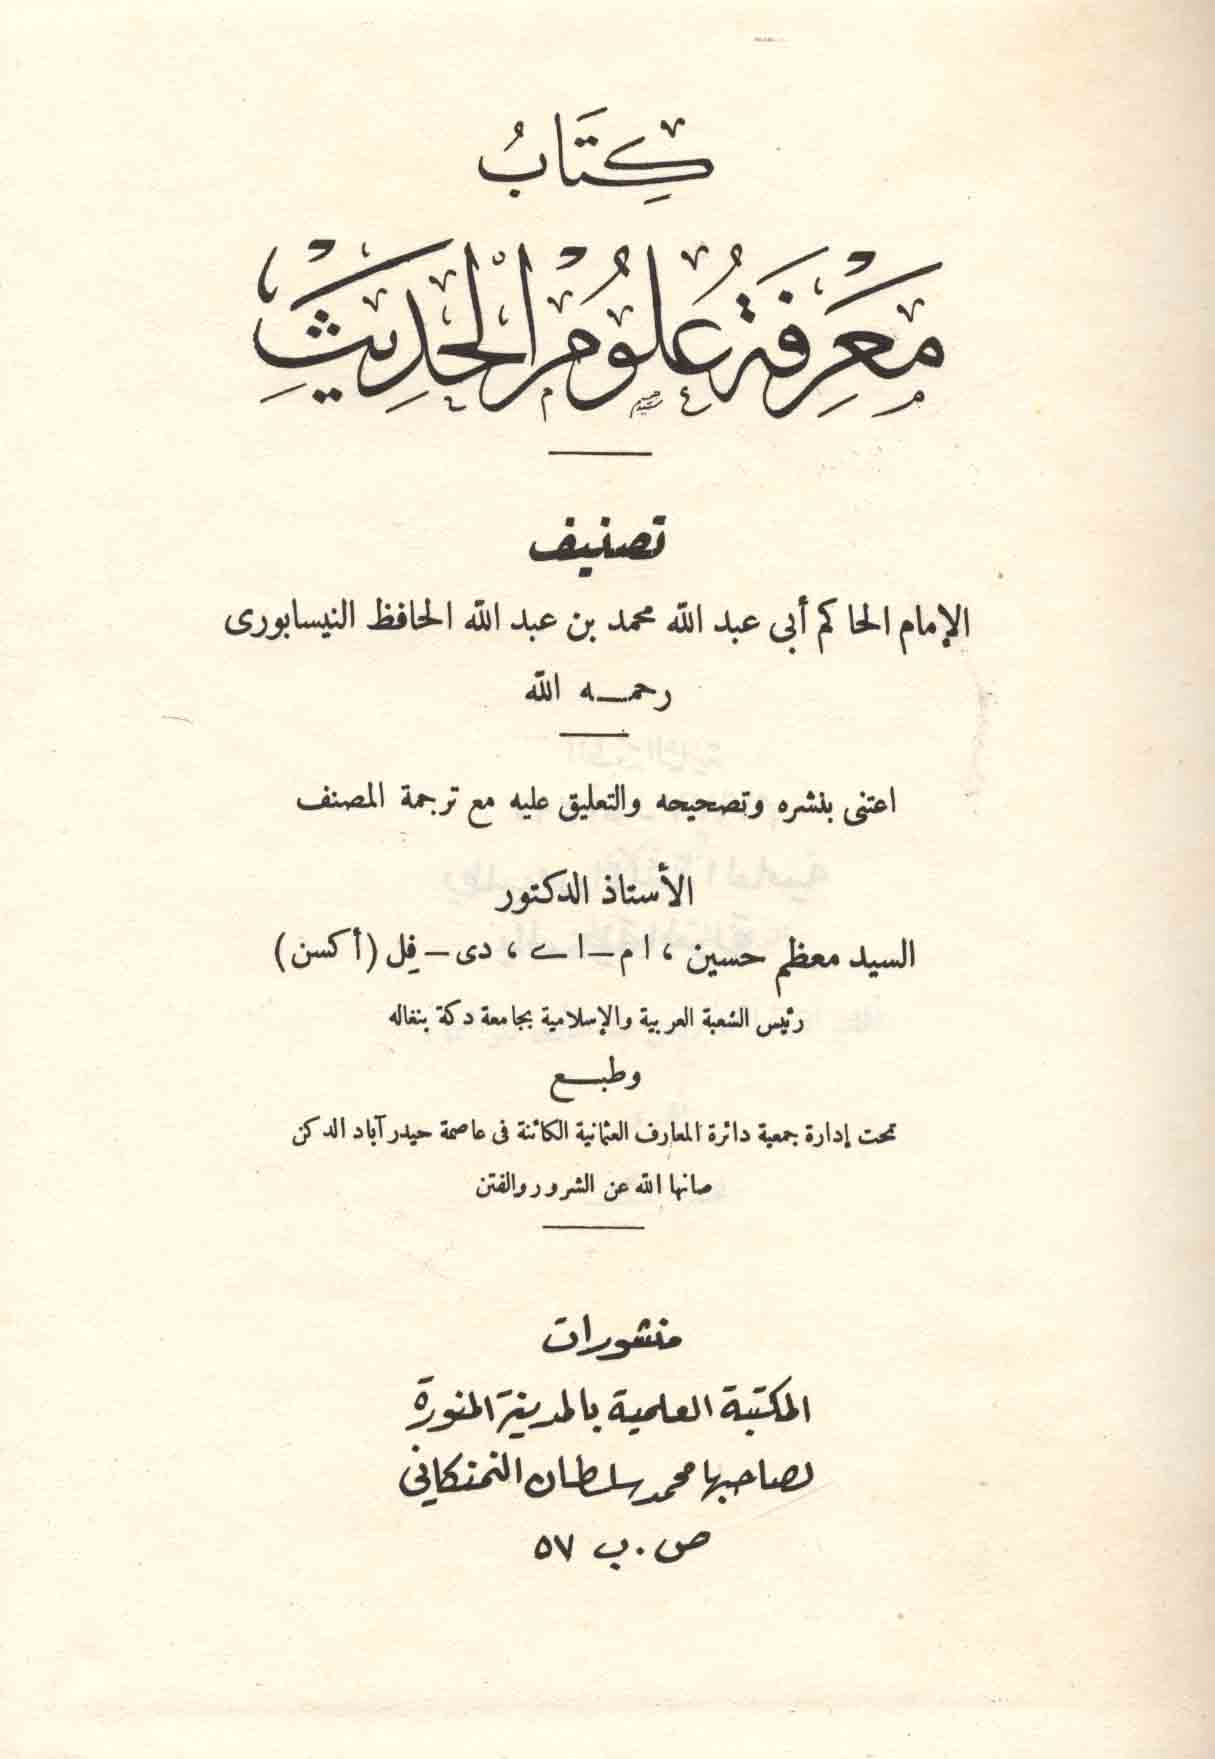 كِتَابُ
مَعْرِفَةِ عُلُومِ الْحَدِيثِ
تصنيف
الإمام الحاكم أبى عبد الله محمد بن عبد الله الحافظ النيسابورى
رحمـــه الله
اعتنى بنشره وتصحيحه والتعليق عليه مع ترجمة المصنف
الأستاذ الدكتور
السيد معظم حسين ، ام – اے ، دى – فِل (أكسن)
رئيس الشعبة العربية والإسلامية بجامعة دكة بنغاله
وطبـــع
تحت إدارة جمعية دائرة المعارف العثمانية الكائنة فى عاصمة حيدر آباد الدكن
صانها الله عن الشرور والفتن
منشورات
المكتبة العلمية بالمدينة المنورة
لصاحبها محمد سلطان النمنكاني
ص . ب ٥٧